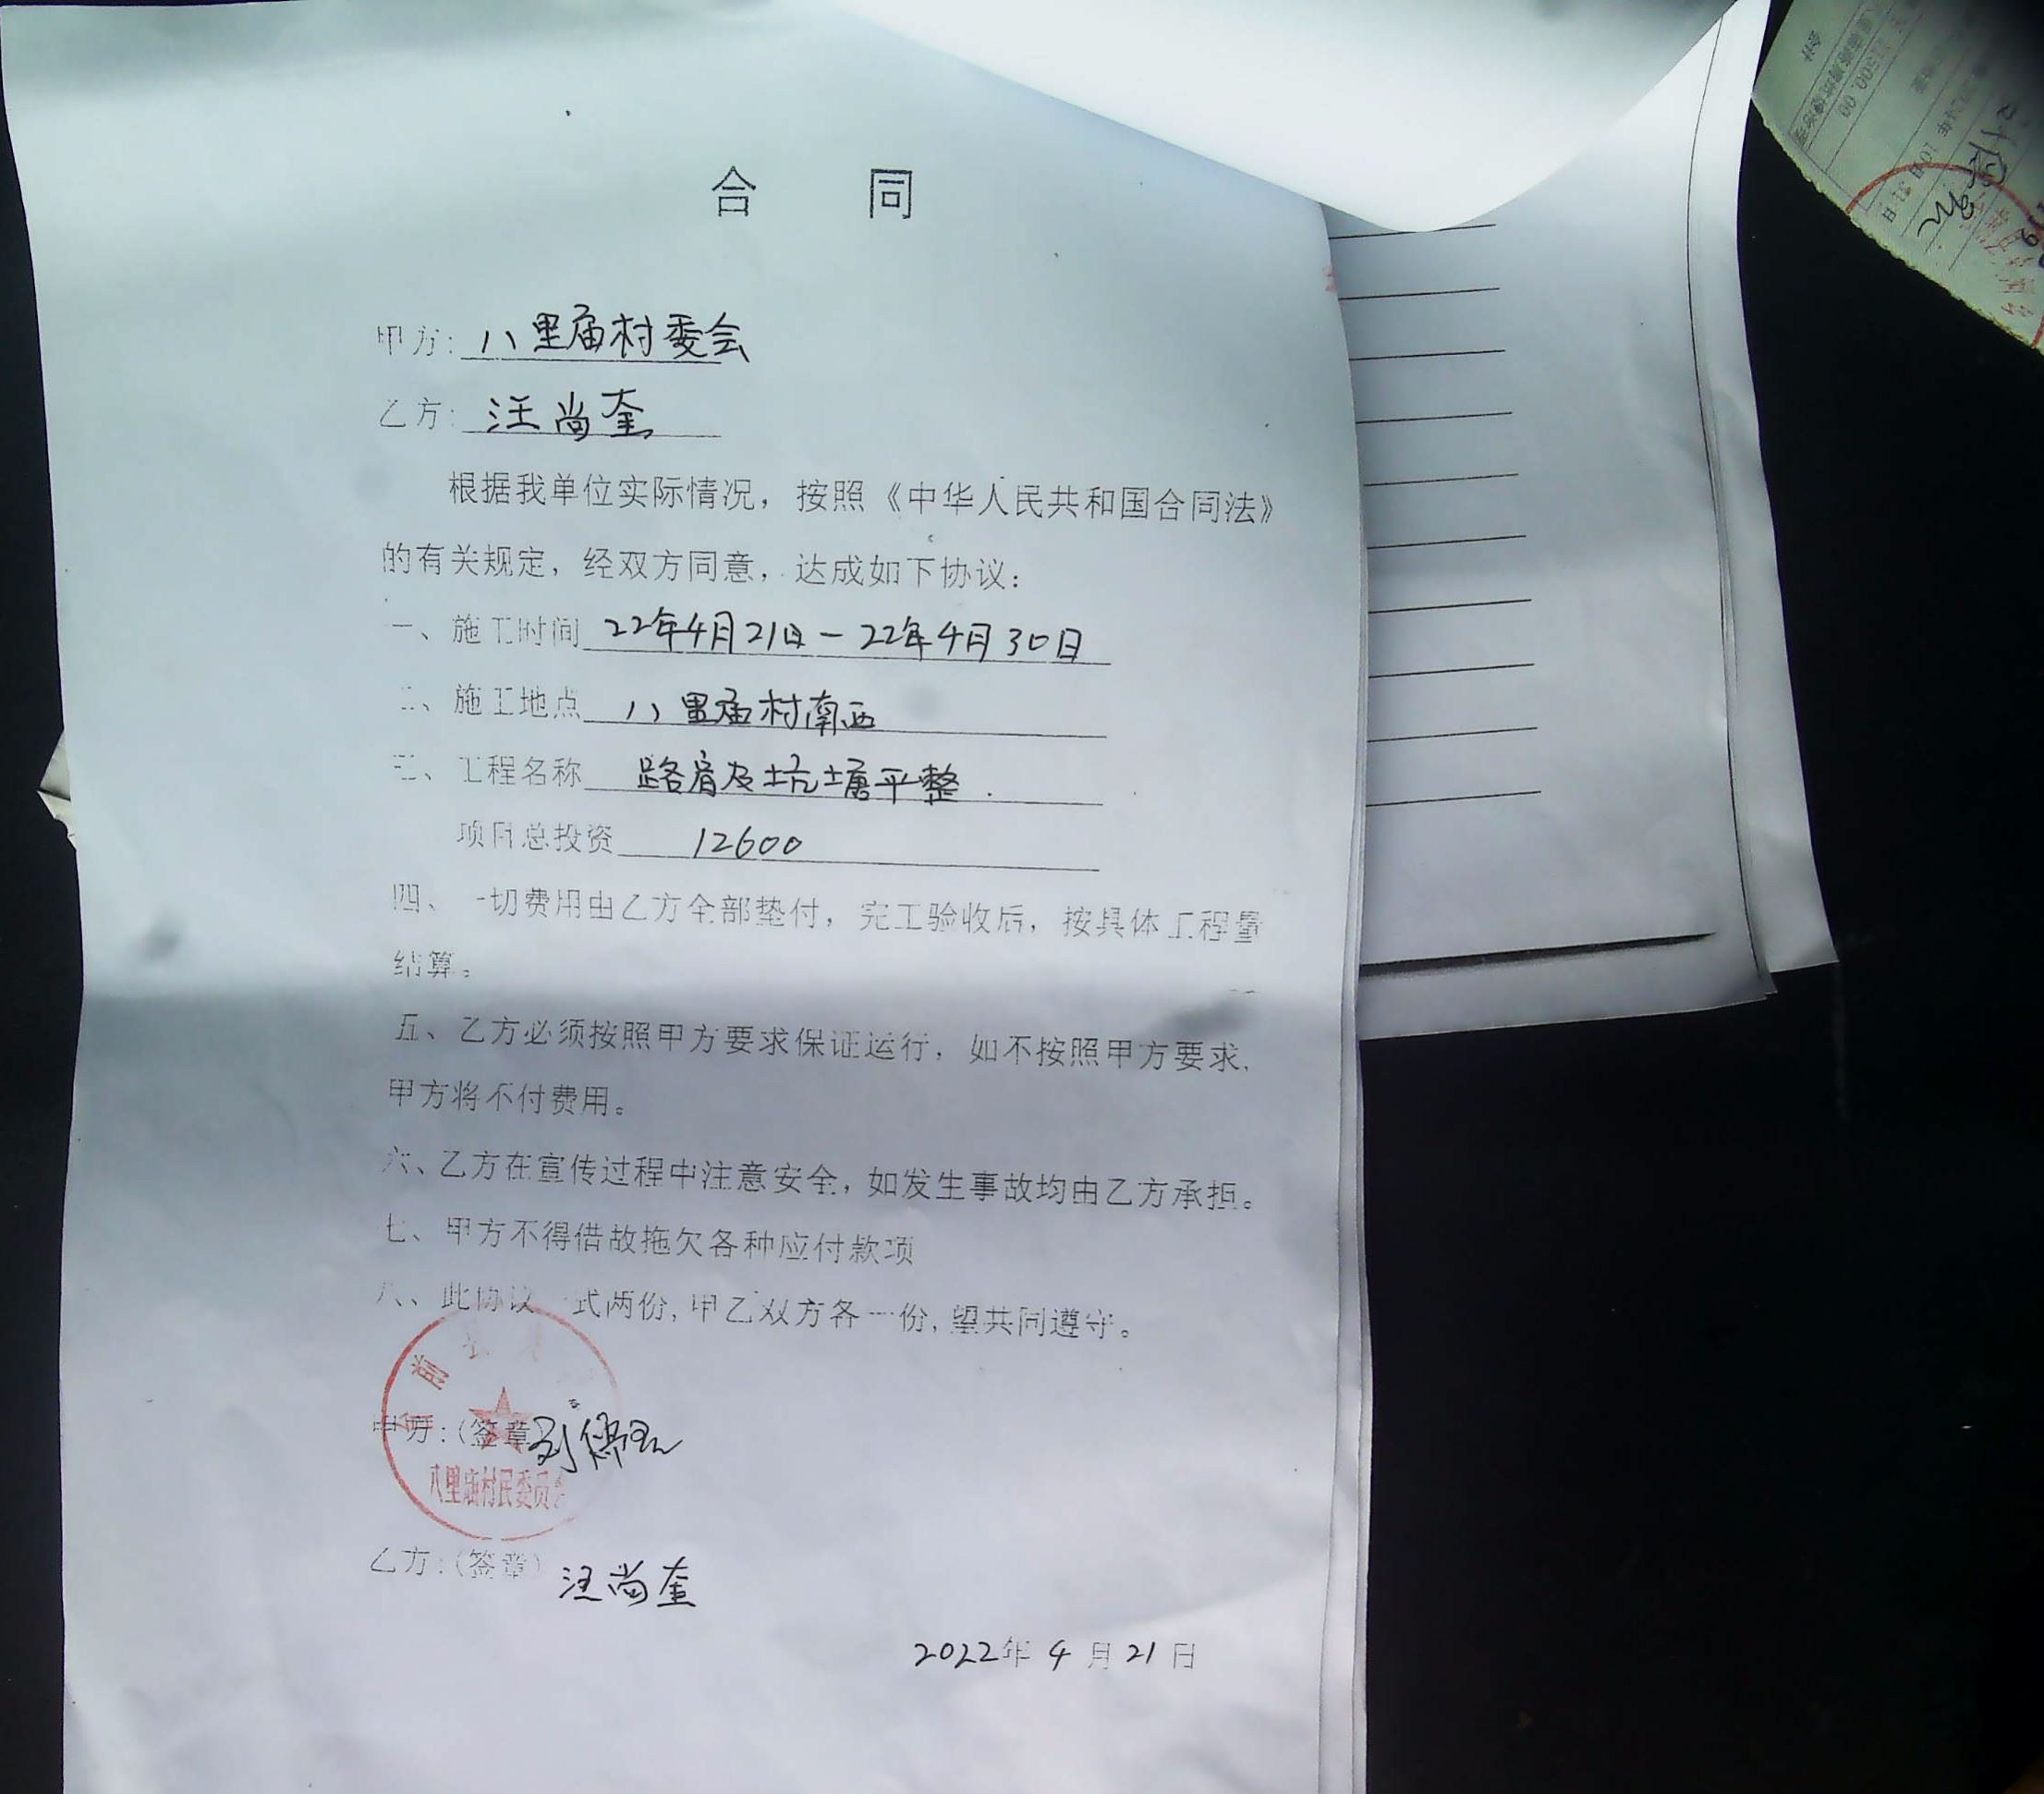 合 同
甲方：八里庙村委会
乙方：汪尚奎
根据我单位实际情况，按照《中华人民共和国合同法》
的有关规定，经双方同意，达成如下协议：
一、施工时间 22年4月21日－22年4月30日
二、施工地点 八里庙村南西
三、工程名称 路肩及坑塘平整.
项目总投资 12600
四、一切费用由乙方全部垫付，完工验收后，按具体工程量
结算。
五、乙方必须按照甲方要求保证运行，如不按照甲方要求，
甲方将不付费用。
六、乙方在宣传过程中注意安全，如发生事故均由乙方承担。
七、甲方不得借故拖欠各种应付款项
八、此协议一式两份，甲乙双方各一份，望共同遵守。
甲方：（签章）
八里庙村民委员会
乙方：（签章）汪尚奎
2022年4月21日